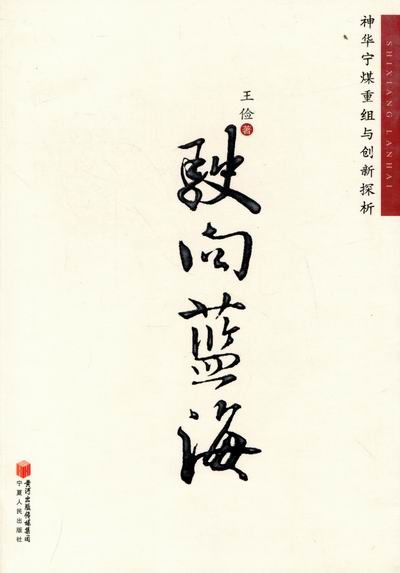 SHIXIANG LANHAI
神华宁煤重组与创新探析
王俭 著
驶向蓝海
黄河出版传媒集团
宁夏人民出版社